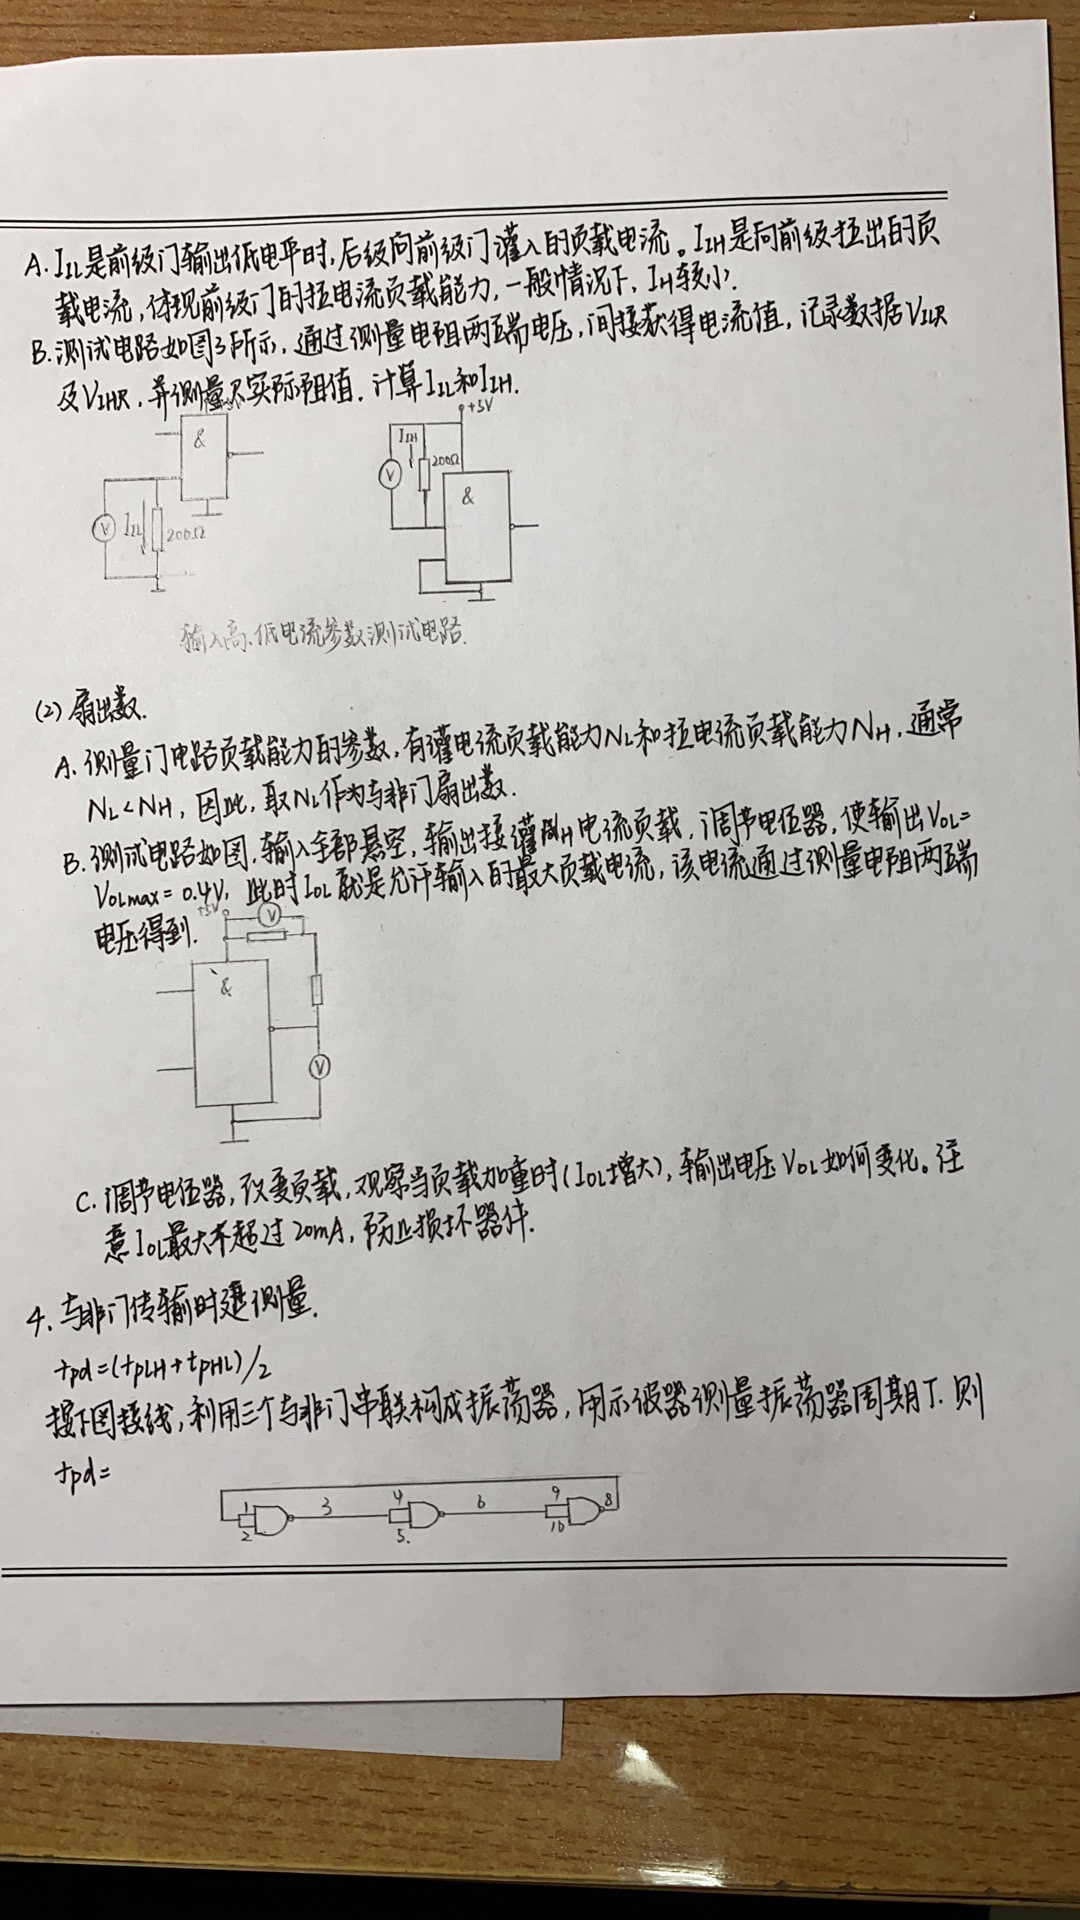 A. IIL是前级门输出低电平时,后级向前级门灌入的负载电流。IIH是向前级拉出的负
载电流,体现前级门的拉电流负载能力,一般情况下,IH较小.
B. 测试电路如图3所示,通过测量电阻两端电压,间接获得电流值,记录数据VILR
及VIHR,并测量R实际阻值.计算IIL和IIH.
&
V
IIL
200Ω
+5V
IIH
200Ω
V
&
输入高、低电流参数测试电路.
(2) 扇出数.
A. 测量门电路负载能力的参数,有灌电流负载能力NL和拉电流负载能力NH,通常
NL<NH,因此,取NL作为与非门扇出数.
B. 测试电路如图,输入全部悬空,输出接灌电流负载,调节电位器,使输出VOL=
VOLmax=0.4V,此时IOL就是允许输入的最大负载电流,该电流通过测量电阻两端
电压得到.
+5V
V
&
V
C. 调节电位器,改变负载,观察当负载加重时(IOL增大),输出电压VOL如何变化。注
意IOL最大不超过20mA,防止损坏器件.
4. 与非门传输时延测量.
tpd=(tpLH+tpHL)/2
按下图接线,利用三个与非门串联构成振荡器,用示波器测量振荡器周期T.则
tpd=
1 2 3 4 5. 6 9 10 8